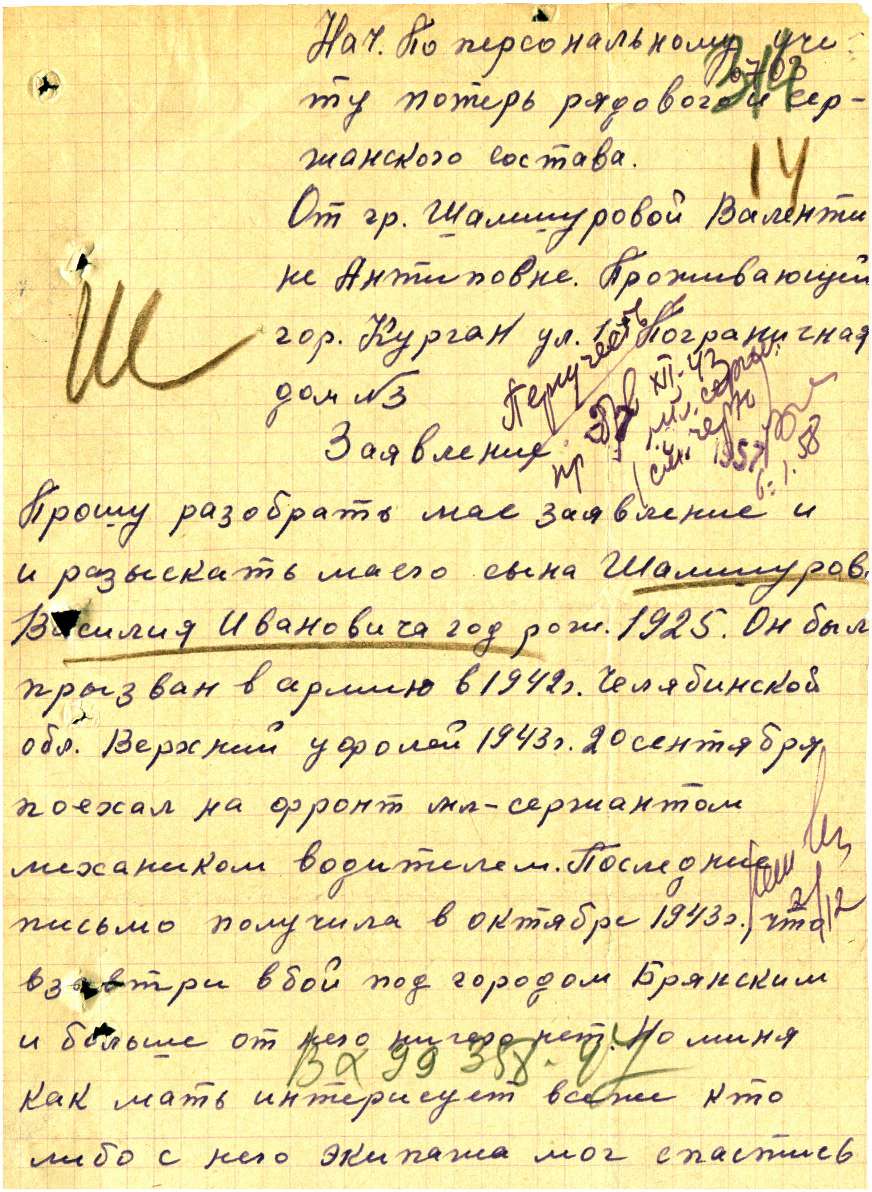 Нач. По персональному уче
ту потерь рядового и сер-
жанского состава.
6703
314
14
От гр. Шамшуровой Валенти
не Антиповне. Проживающей
гор. Курган ул. 1 Пограничная
дом №3
Ш
XII-43
1957
6.1.58
Заявление
Прошу разобрать мае заявление и
и разыскать маего сына Шамшуров.
Василия Ивановича год рож. 1925. Он был
прызван в армию в 1942г. Челябинской
обл. Верхний уфолей 1943г. 20 сентября
поехал на фронт мл-сержантом
механиком водителем. Последние
письмо получила в октябре 1943г., что
взавтри в бой под городом Брянским
и больше от него ничего нет. Но миня
Вх 99358
как мать интерисует все же кто
либо с него экипажа мог спастись